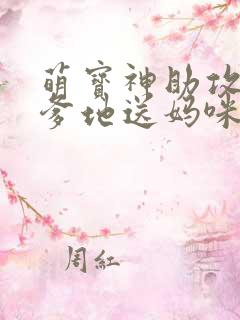 萌寶神助攻
爹地送媽咪
周紅